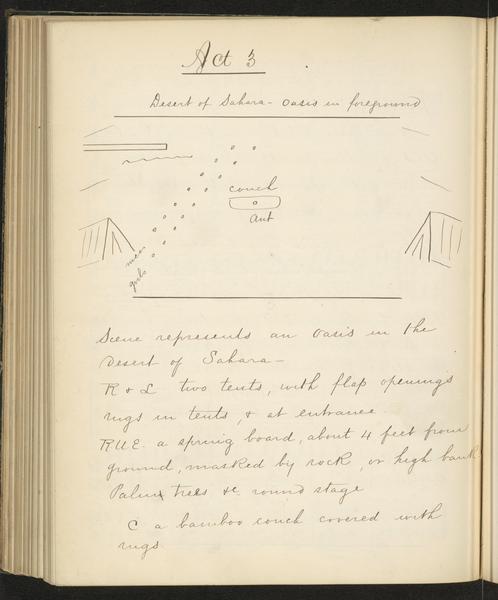 Act 3
Desert of Sahara - Oasis in foreground
couch
Ant
men
girls
Scene represents an Oasis in the
Desert of Sahara -
R & L two tents, with flap openings
rugs in tents, & at entrance.
R.U.E. a spring board, about 4 feet from
ground, masked by rock, or high bank
Palm trees &c. round stage
C a bamboo couch covered with
rugs